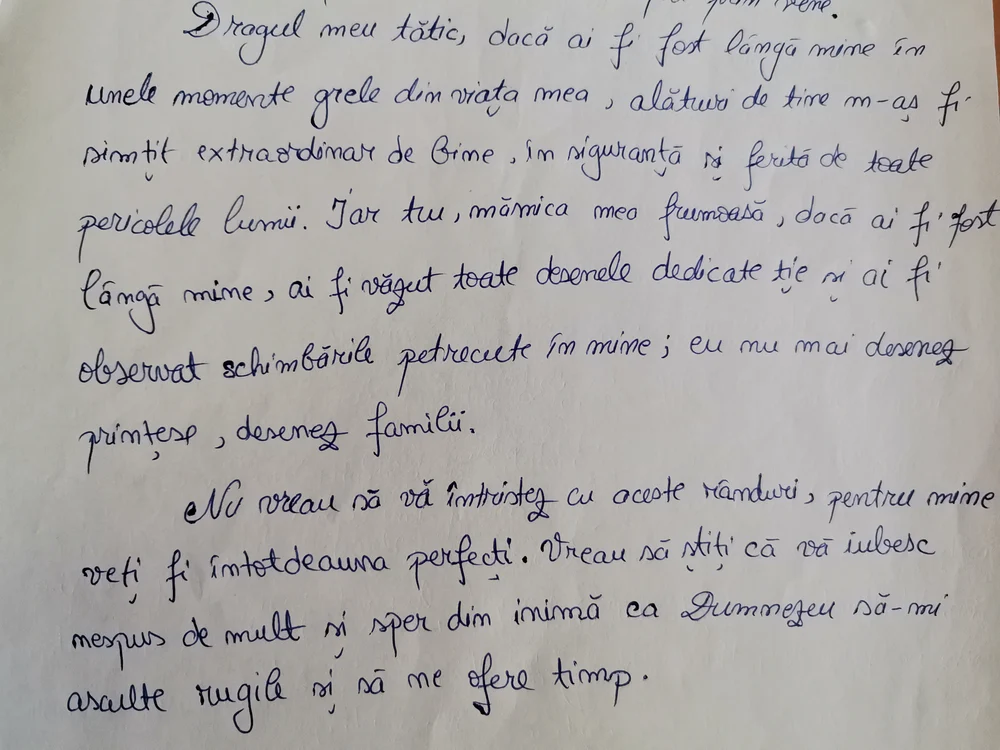 vene.
Dragul meu tătic, dacă ai fi fost lângă mine în
unele momente grele din viața mea, alături de tine m-aș fi
simțit extraordinar de bine, în siguranță și ferită de toate
pericolele lumii. Iar tu, mămica mea frumoasă, dacă ai fi fost
lângă mine, ai fi văzut toate desenele dedicate ție și ai fi
observat schimbările petrecute în mine; eu nu mai desenez
prințese, desenez familii.
Nu vreau să vă întristez cu aceste rânduri, pentru mine
veți fi întotdeauna perfecți. Vreau să știți că vă iubesc
nespus de mult și sper din inimă ca Dumnezeu să-mi
asculte rugile și să ne ofere timp.